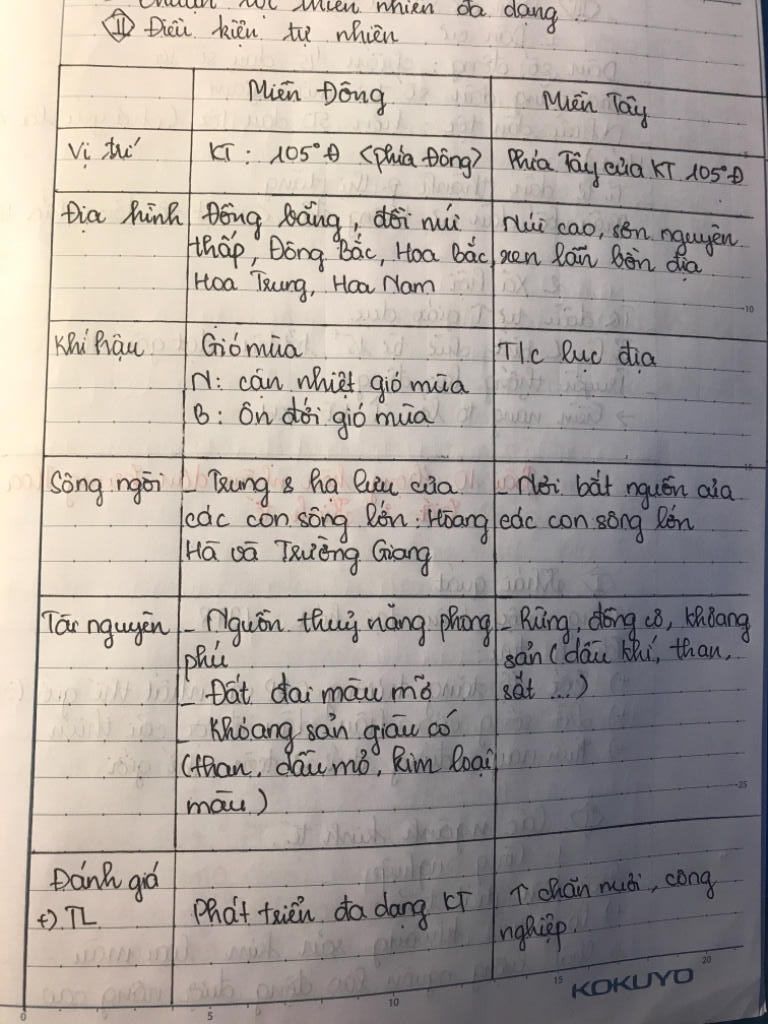 thiên nhiên đa dạng.
II Điều kiện tự nhiên
Miền Đông
Miền Tây
Vị trí
KT : 105° Đ (phía Đông)
Phía Tây của KT 105° Đ
Địa hình
Đồng bằng, đồi núi
thấp, Đông Bắc, Hoa Bắc,
Hoa Trung, Hoa Nam
Núi cao, sơn nguyên
xen lẫn bồn địa
Khí hậu
Gió mùa
N: cận nhiệt gió mùa
B: Ôn đới gió mùa
T/c lục địa
Sông ngòi
- Trung & hạ lưu của
các con sông lớn : Hoàng
Hà và Trường Giang
- Nơi bắt nguồn của
các con sông lớn
Tài nguyên
- Nguồn thuỷ năng phong
phú
- Đất đai màu mỡ
- Khoáng sản giàu có
(than, dầu mỏ, kim loại
màu)
- Rừng, đồng cỏ, khoáng
sản (dầu khí, than,
sắt ...)
Đánh giá
+) TL
Phát triển đa dạng KT
↑ chăn nuôi, công
nghiệp.
KOKUYO
5
10
15
20
0
5
10
15
25